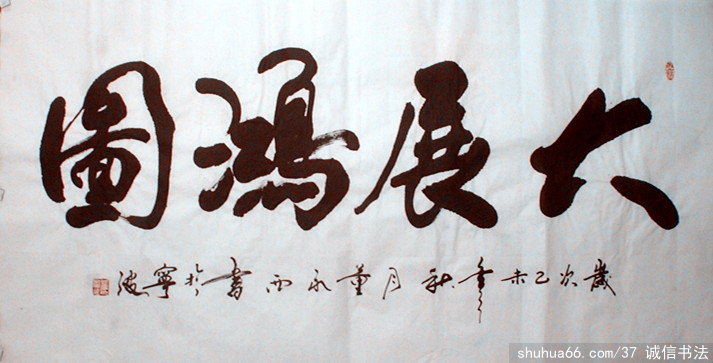 大展鴻圖
歲次乙未年秋月董永西書於寧波
shuhua66.com/37 诚信书法